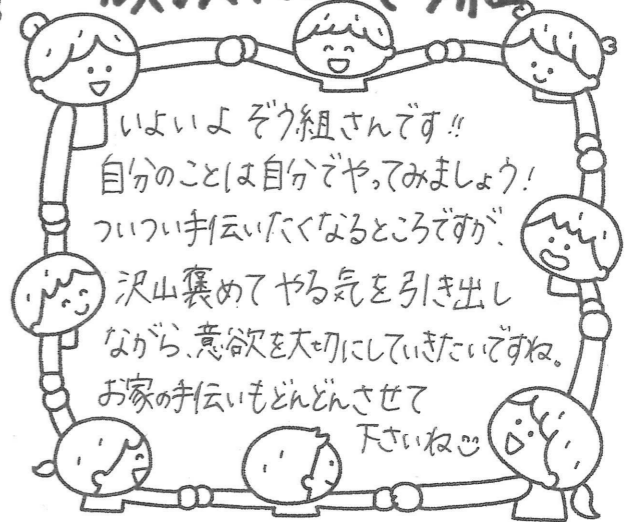 いよいよ ぞう組さんです!!
自分のことは自分でやってみましょう!
ついつい手伝いたくなるところですが、
沢山褒めて やる気を引き出し
ながら、意欲を大切にしていきたいですね。
お家の手伝いもどんどんさせて
下さいね